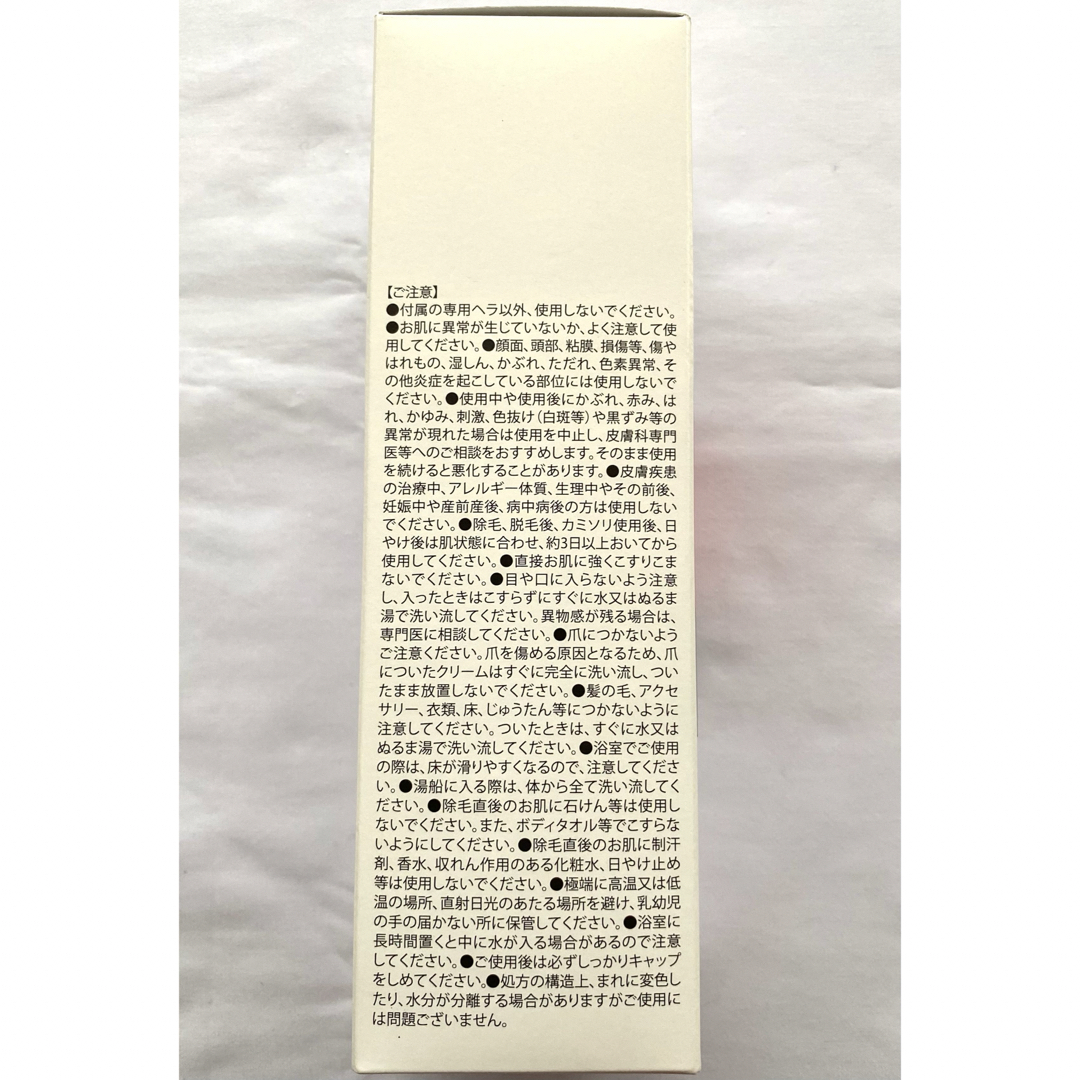 【ご注意】
●付属の専用ヘラ以外、使用しないでください。
●お肌に異常が生じていないか、よく注意して使
用してください。●顔面、頭部、粘膜、損傷等、傷や
はれもの、湿しん、かぶれ、ただれ、色素異常、そ
の他炎症を起こしている部位には使用しないで
ください。●使用中や使用後にかぶれ、赤み、は
れ、かゆみ、刺激、色抜け（白斑等）や黒ずみ等の
異常が現れた場合は使用を中止し、皮膚科専門
医等へのご相談をおすすめします。そのまま使用
を続けると悪化することがあります。●皮膚疾患
の治療中、アレルギー体質、生理中やその前後、
妊娠中や産前産後、病中病後の方は使用しない
でください。●除毛、脱毛後、カミソリ使用後、日
やけ後は肌状態に合わせ、約3日以上おいてから
使用してください。●直接お肌に強くこすりこま
ないでください。●目や口に入らないよう注意
し、入ったときはこすらずにすぐに水又はぬるま
湯で洗い流してください。異物感が残る場合は、
専門医に相談してください。●爪につかないよう
ご注意ください。爪を傷める原因となるため、爪
についたクリームはすぐに完全に洗い流し、つい
たまま放置しないでください。●髪の毛、アクセ
サリー、衣類、床、じゅうたん等につかないように
注意してください。ついたときは、すぐに水又は
ぬるま湯で洗い流してください。●浴室でご使用
の際は、床が滑りやすくなるので、注意してくださ
い。●湯船に入る際は、体から全て洗い流してく
ださい。●除毛直後のお肌に石けん等は使用し
ないでください。また、ボディタオル等でこすらな
いようにしてください。●除毛直後のお肌に制汗
剤、香水、収れん作用のある化粧水、日やけ止め
等は使用しないでください。●極端に高温又は低
温の場所、直射日光のあたる場所を避け、乳幼児
の手の届かない所に保管してください。●浴室に
長時間置くと中に水が入る場合があるので注意
してください。●ご使用後は必ずしっかりキャップ
をしめてください。●処方の構造上、まれに変色し
たり、水分が分離する場合がありますがご使用に
は問題ございません。